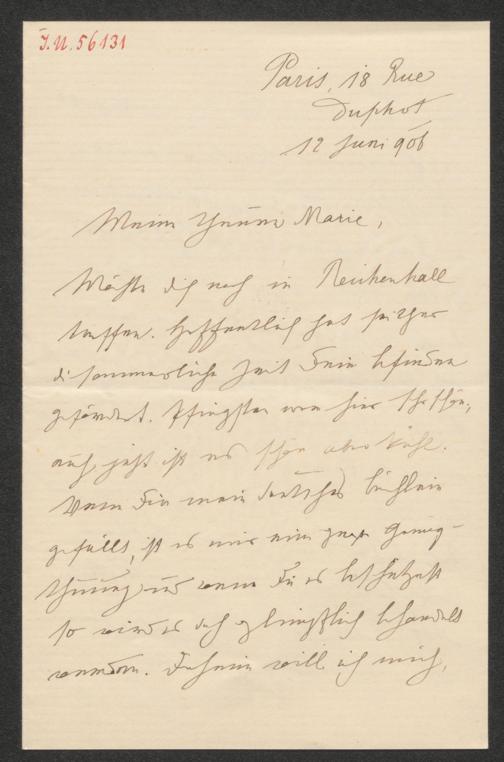 J.N. 56131
Paris, 18 Rue
Duphot
12 Juni 906
Meine theure Marie,
Möchte dich noch in Reichenhall
treffen. Hoffentlich hat seither
di sommerliche Zeit Dein befinden
gefördert. Pfingsten war hier sehr schön,
auch jetzt ist es schön aber kühl.
Wenn Dir mein deutsches büchlein
gefällt, ist es mir eine Genug-
thuung und wenn Du es beschützest
so wird es doch glimpflich behandelt
werden. will ich mich,